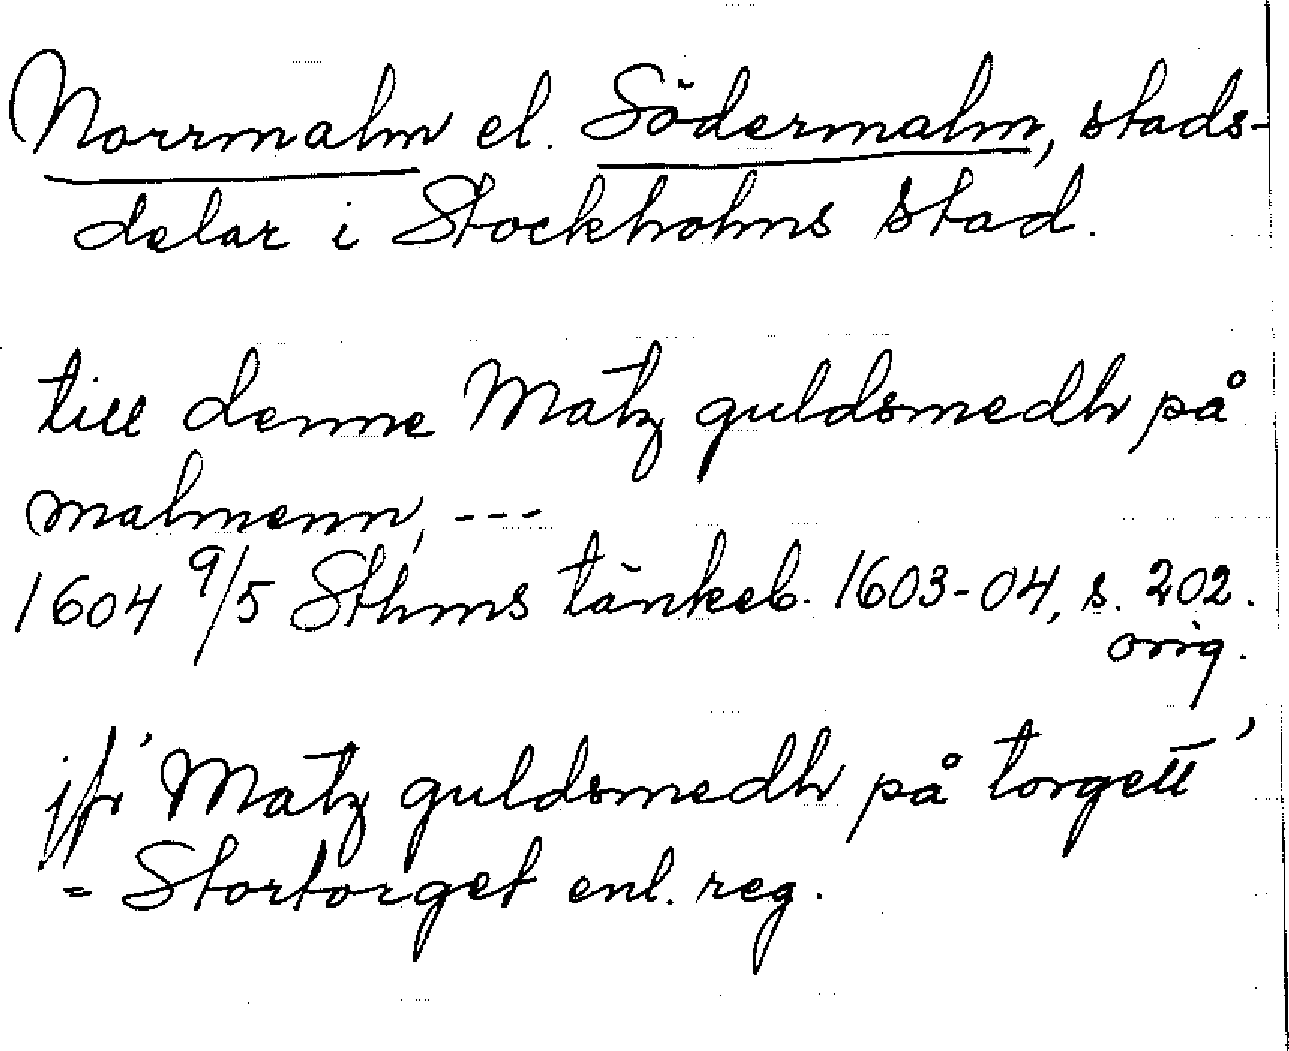 Norrmalm el. Södermalm, stads-
delar i Stockholms stad.
till denne Matz guldsmedh på
malmenn, ---
1604 9/5 Sthms tänkeb. 1603-04, s. 202.
orig.
jfr 'Matz guldsmedh på torgett'
= Stortorget enl. reg.